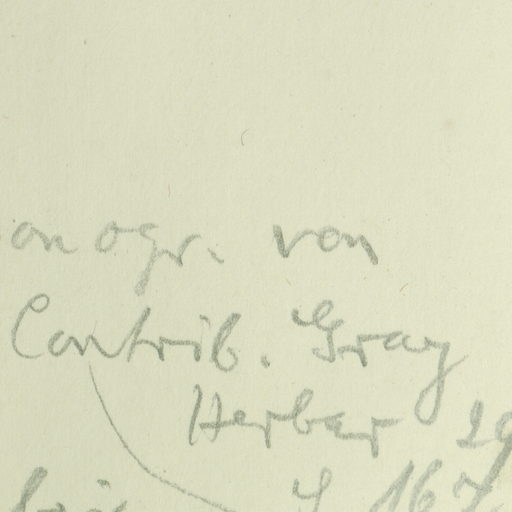 onogr. von
Contrib. Gray
Herbar 29